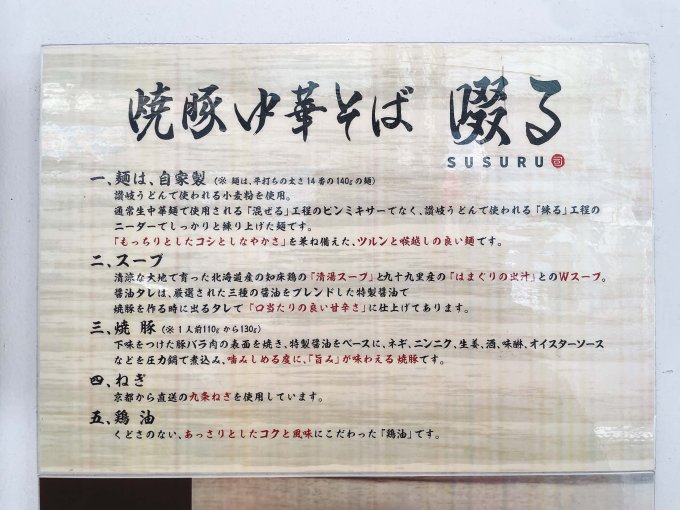 焼豚中華そば 啜る
SUSURU
一、麺は、自家製 (※ 麺は、平打ちの太さ14番の140gの麺)
讃岐うどんで使われる小麦粉を使用。
通常生中華麺で使用される「混ぜる」工程のピンミキサーでなく、讃岐うどんで使われる「練る」工程の
ニーダーでしっかりと練り上げた麺です。
「もっちりとしたコシとしなやかさ」を兼ね備えた、ツルンと喉越しの良い麺です。
二、スープ
清涼な大地で育った北海道産の知床鶏の「清湯スープ」と九十九里産の「はまぐりの出汁」とのWスープ。
醤油タレは、厳選された三種の醤油をブレンドした特製醤油で
焼豚を作る時に出るタレで「口当たりの良い甘辛さ」に仕上げてあります。
三、焼豚 (※1人前110gから130g)
下味をつけた豚バラ肉の表面を焼き、特製醤油をベースに、ネギ、ニンニク、生姜、酒、味醂、オイスターソース
などを圧力鍋で煮込み、噛みしめる度に、「旨み」が味わえる焼豚です。
四、ねぎ
京都から直送の九条ねぎを使用しています。
五、鶏油
くどさのない、あっさりとしたコクと風味にこだわった「鶏油」です。